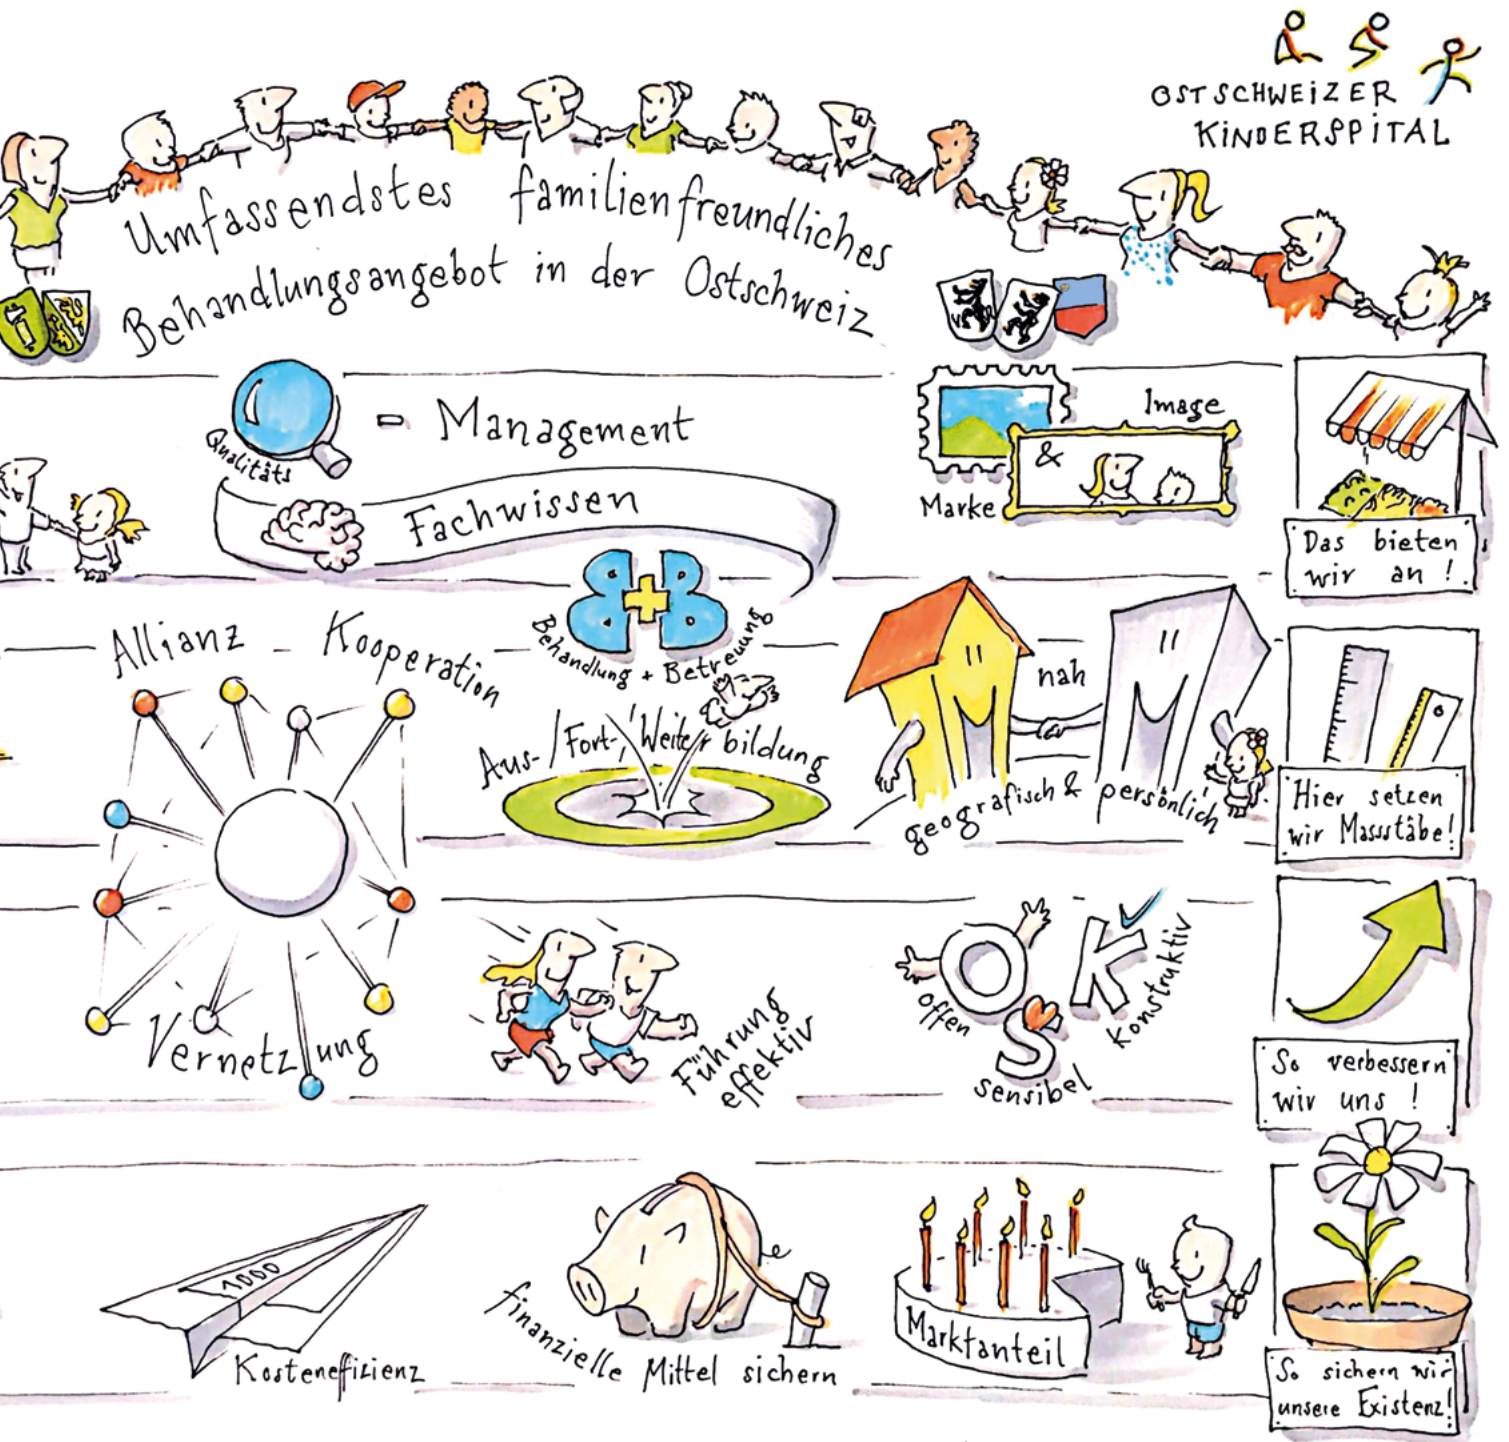 OSTSCHWEIZER
KINDERSPITAL
Umfassendstes familienfreundliches
Behandlungsangebot in der Ostschweiz
Qualitäts
- Management
Fachwissen
Marke
&
Image
Das bieten
wir an !
Allianz - Kooperation
Vernetzung
B+B
Behandlung + Betreuung
Aus-/Fort-/Weiterbildung
nah
geografisch & persönlich
Hier setzen
wir Massstäbe!
Führung
effektiv
OSK
offen
sensibel
konstruktiv
So verbessern
wir uns !
1000
Kosteneffizienz
finanzielle Mittel sichern
Marktanteil
So sichern wir
unsere Existenz!